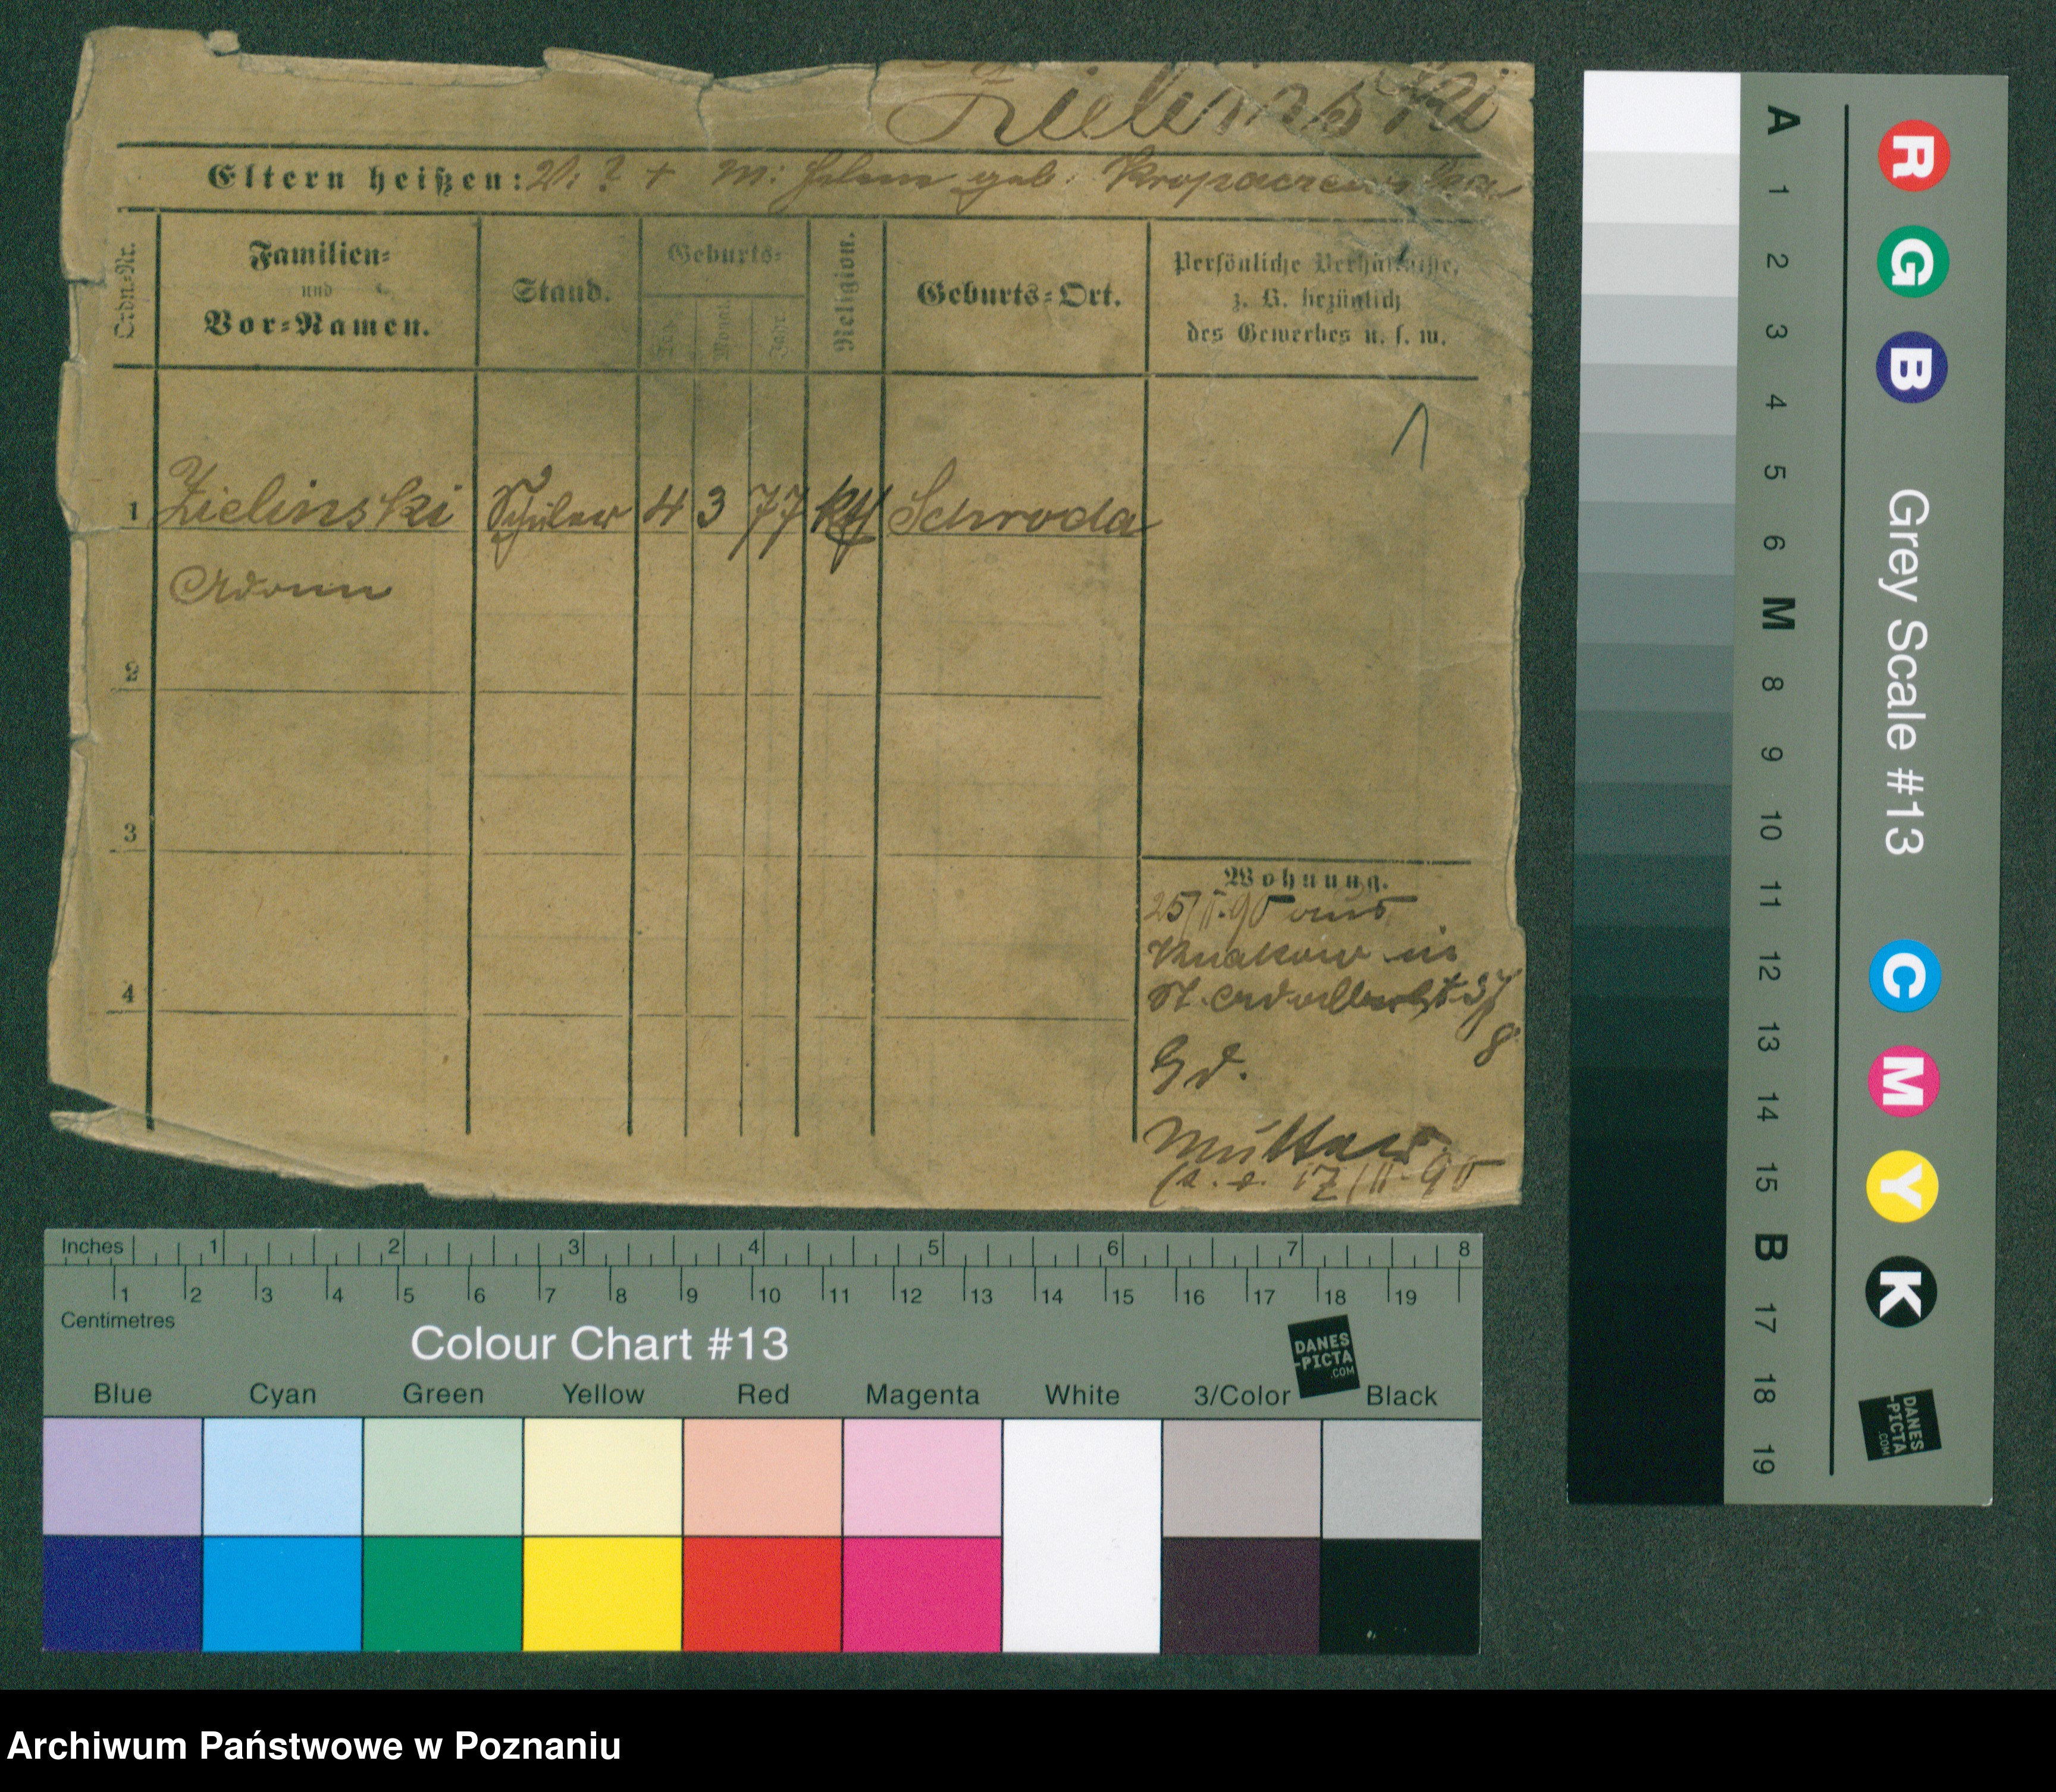 Zielinski
Eltern heißen: V: ? + M: Helene geb. Kropaczewska
Ordn=Nr.
Familien=
und
Vor=Namen.
Stand.
Geburts=
Tag.
Monat.
Jahr.
Religion.
Geburts=Ort.
Persönliche Verhältnisse,
z. B. bezüglich
des Gewerbes u. s. w.
1
1 Zielinski Schüler 4 3 77 kth Schroda
Adam
2
3
4
Wohnung.
25/ 90 aus
Krakow in
St. Adalbertst 37
8
bei
Mutter
17/II 90
A 1 2 3 4 5 6 M 8 9 10 11 12 13 14 15 B 17 18 19
R G B
Grey Scale #13
C M Y K
DANES
-PICTA
.COM
Inches 1 2 3 4 5 6 7 8
1 2 3 4 5 6 7 8 9 10 11 12 13 14 15 16 17 18 19
Centimetres
Colour Chart #13
DANES
-PICTA
.COM
Blue Cyan Green Yellow Red Magenta White 3/Color Black
Archiwum Państwowe w Poznaniu